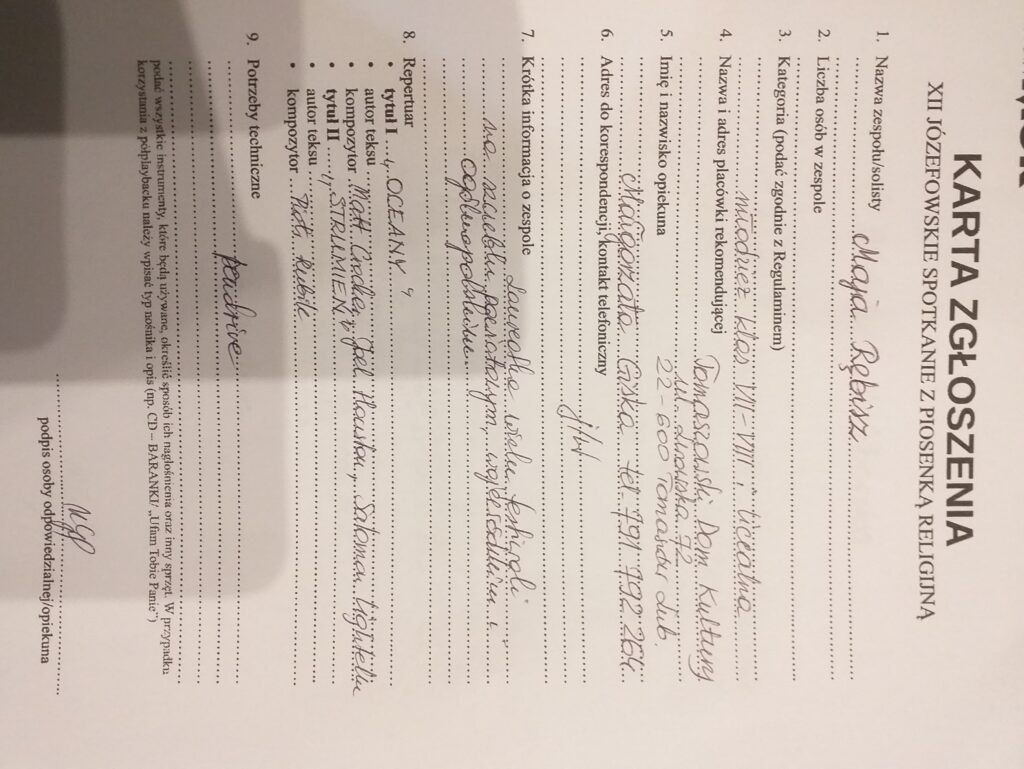 KARTA ZGŁOSZENIA
XII JÓZEFOWSKIE SPOTKANIE Z PIOSENKĄ RELIGIJNĄ
1. Nazwa zespołu/solisty
Maja Rębisz
2. Liczba osób w zespole
3. Kategoria (podać zgodnie z Regulaminem)
młodzież klas VII-VIII i licealna
4. Nazwa i adres placówki rekomendującej
Tomaszowski Dom Kultury
ul. Lwowska 72
22-600 Tomaszów Lub.
5. Imię i nazwisko opiekuna
Małgorzata tel. 791 792 264
6. Adres do korespondencji/kontakt telefoniczny
j/w
7. Krótka informacja o zespole
Laureatka wielu festiwali
na szczeblu powiatowym, wojewódzkim i
ogólnopolskim
8. Repertuar
• tytuł I „OCEANY"
• autor teksu Matt Crocker, Joel Houston, Salomon Lightelm
• kompozytor
• tytuł II „STRUMIEŃ"
• autor teksu
• kompozytor Piotr Kubite
9. Potrzeby techniczne
pendrive
podać wszystkie instrumenty, które będą używane, określić sposób ich nagłośnienia oraz inny sprzęt. W przypadku
korzystania z półplaybacku należy wpisać typ nośnika i opis (np. CD – BARANKI/ „Ufam Tobie Panie")
podpis osoby odpowiedzialnej/opiekuna